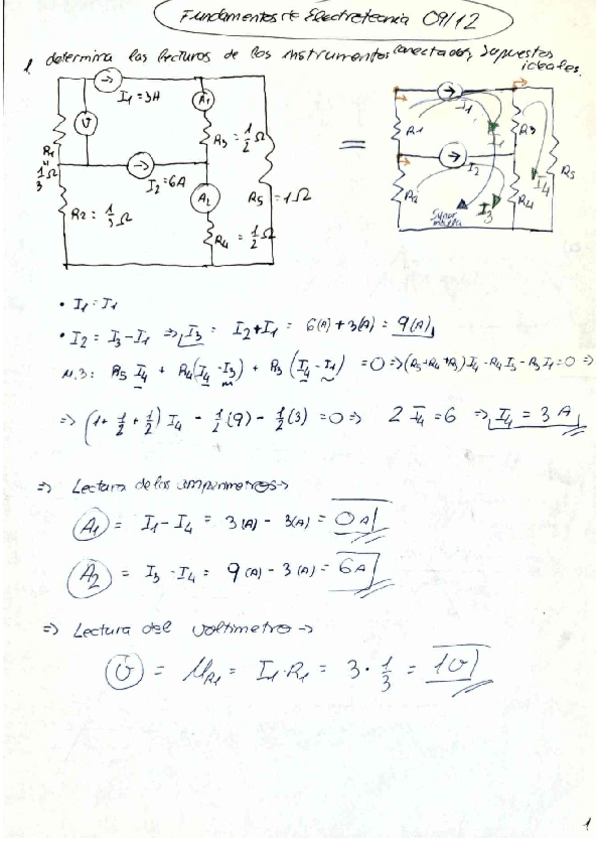 Fundamentos de Electrotecnia 09/12
1. determina las lecturas de los instrumentos conectados, supuestos ideales.
I1 = 3A
A1
V
R1 = 1/3 Ω
R3 = 1/2 Ω
I2 = 6A
A2
R2 = 1/3 Ω
R5 = 1Ω
R4 = 1/2 Ω
=
I1
R1
I1
R3
I2
R2
R4
R5
I4
I3
• I1 = I1
• I2 = I3 - I1 ⇒ I3 = I2 + I1 = 6(A) + 3(A) = 9(A)
M.3: R5 I4 + R4(I4 - I3) + R3(I4 - I1) = 0 ⇒ (R5+R4+R3) I4 - R4 I3 - R3 I1 = 0 ⇒
⇒ (1 + 1/2 + 1/2) I4 - 1/2 (9) - 1/2 (3) = 0 ⇒ 2 I4 = 6 ⇒ I4 = 3 A
⇒ Lectura de los amperimetros →
A1 = I1 - I4 = 3(A) - 3(A) = 0 A
A2 = I3 - I4 = 9(A) - 3(A) = 6 A
⇒ Lectura del voltimetro →
V = UR1 = I1 · R1 = 3 · 1/3 = 1 V
1